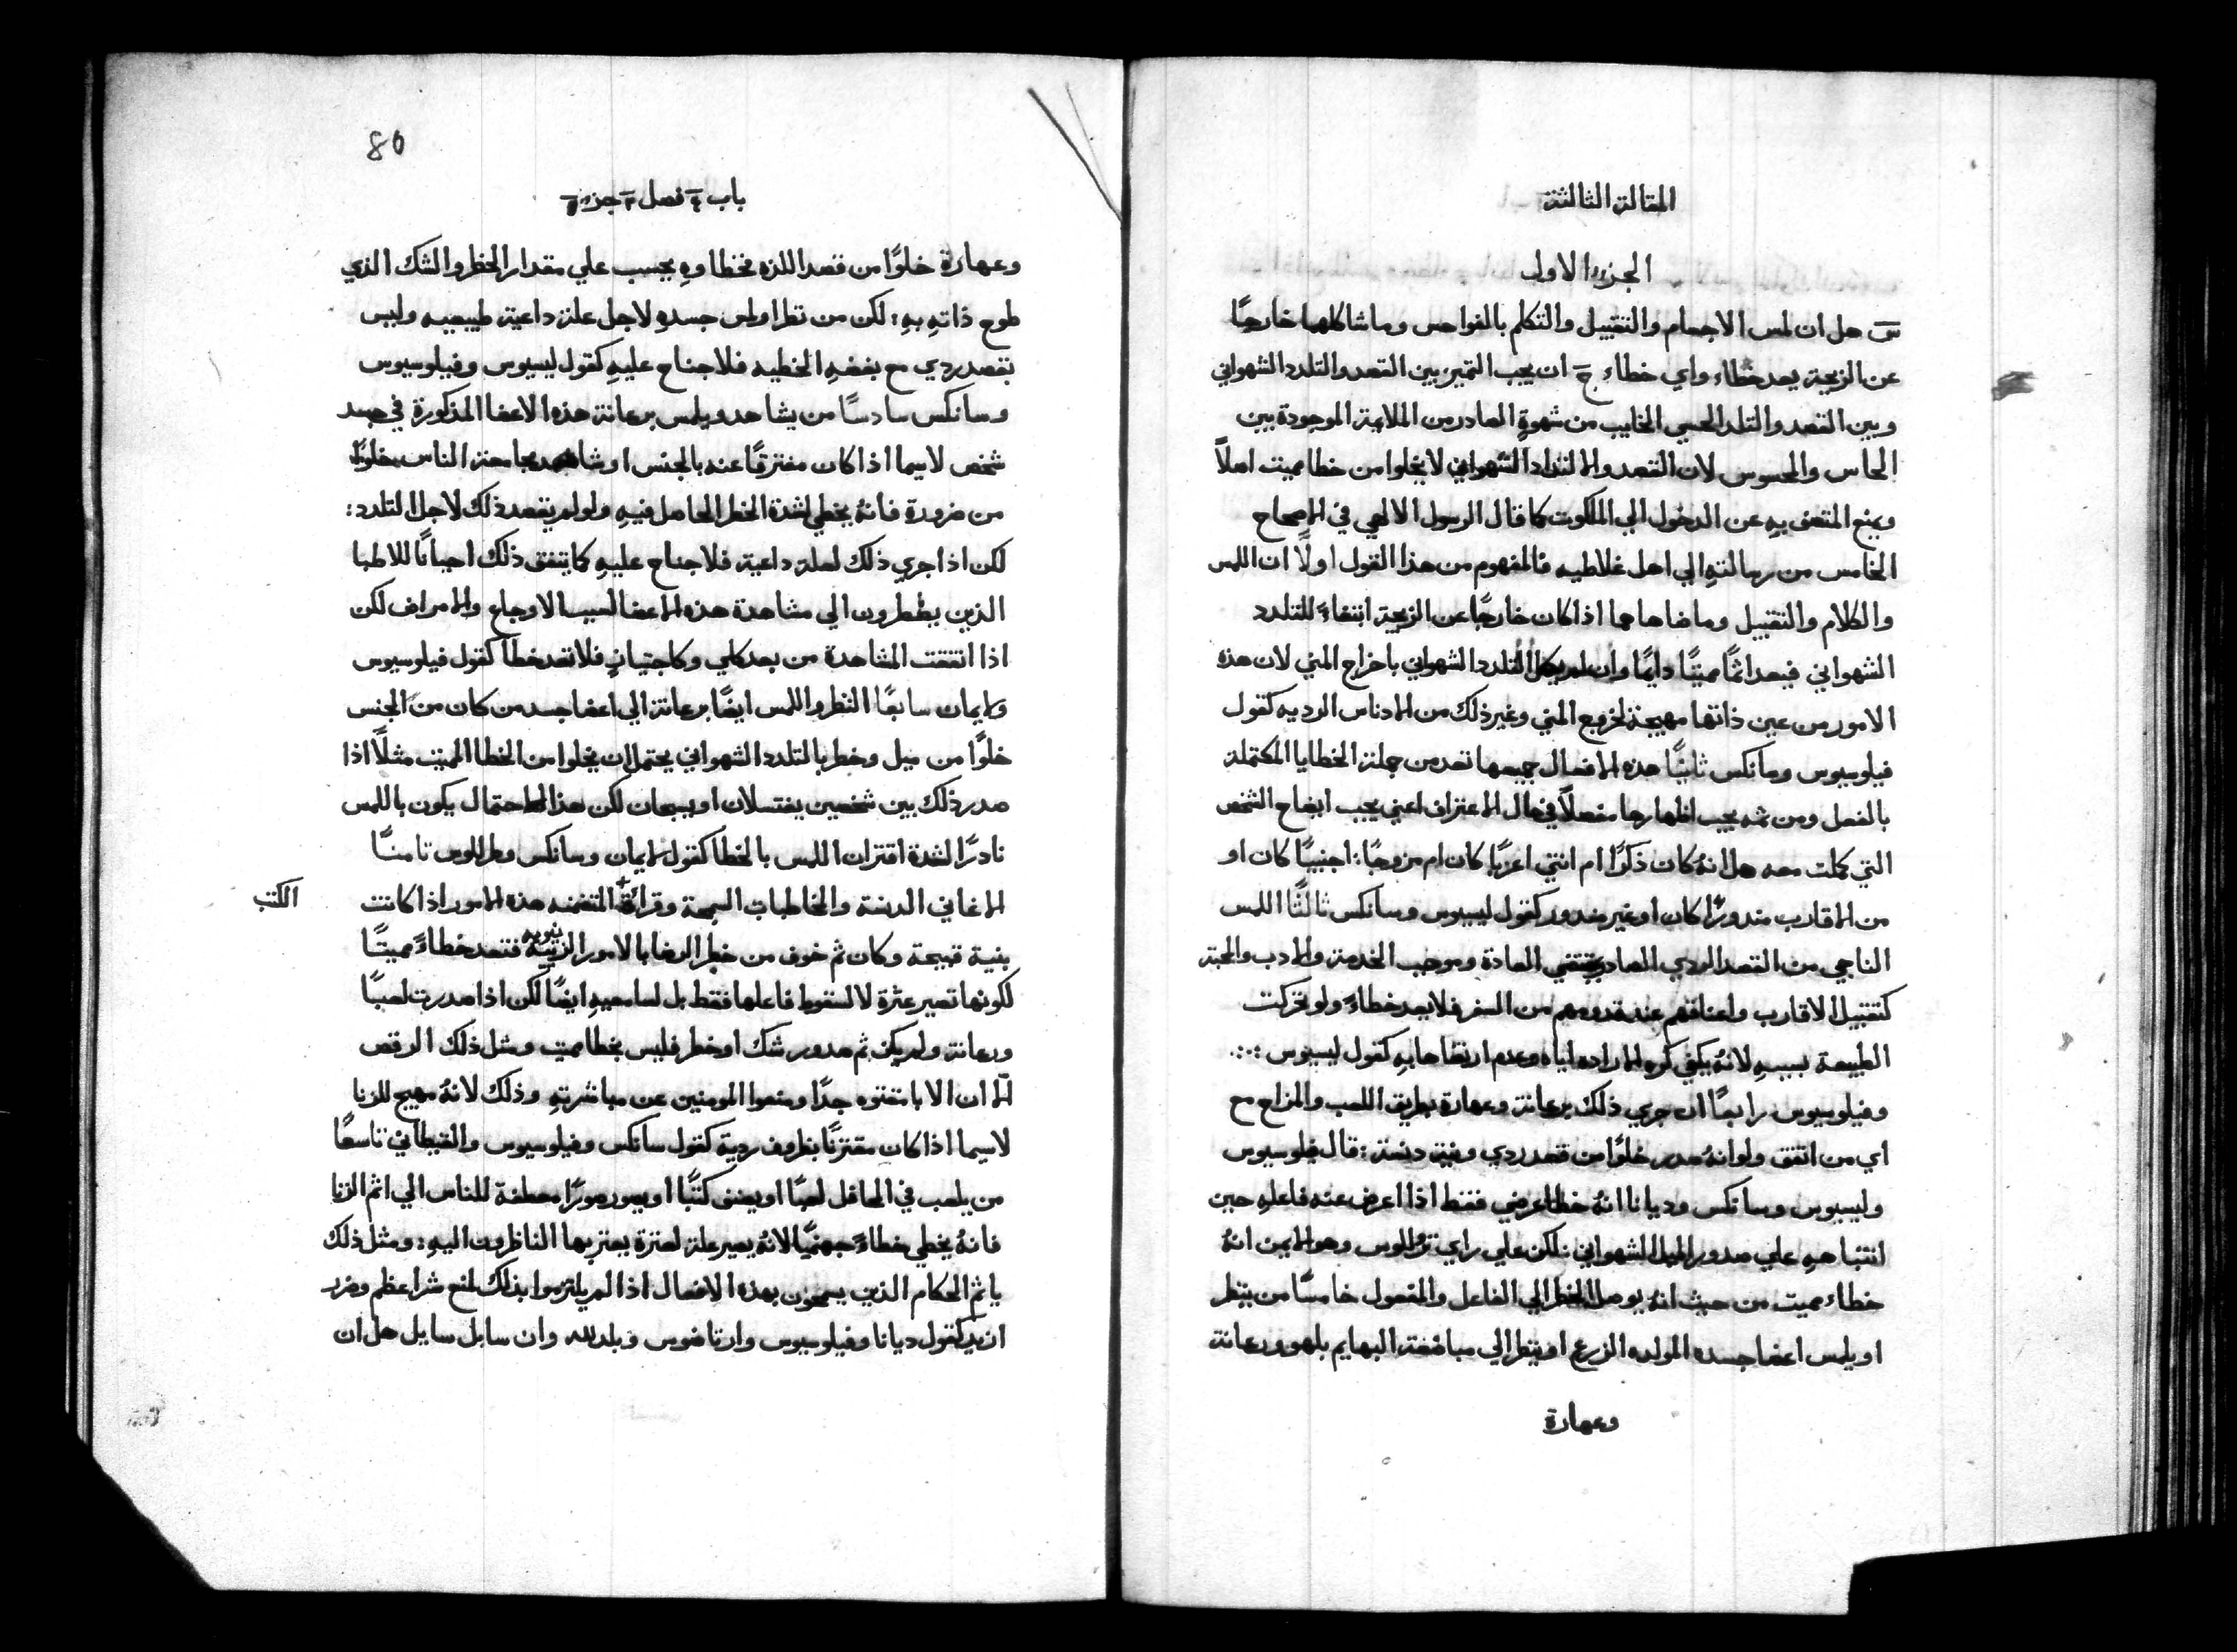 المقالة الثالثة
الجزؤ الاول
س هل ان لمس الاجسام والتقبيل والتكلم بالفواحس وما شاكلها خارجًا
عن الزيجة يعد خطاء واي خطاء ج ان يجب التميز بين القصد والتلدد الشهواني
وبين القصد والتلدد الحسي الخايب من شهوةٍ الصادر من الملايمة الموجودة بين
الحاس والمحسوس لان القصد والالتداد الشهواني لا يخلوا من خطا مميت اصلاً
ويمنع المتصف بهِ عن الدخول الي الملكوت كما قال الرسول الالهي في الاصحاح
الخامس من رسالتهِ الي اهل غلاطيه فالمفهوم من هذا القول اولاً ان اللمس
والكلام والتقبيل وما ضاهاهما اذا كان خارجًا عن الزيجة ابتغاءً للتلدد
الشهواني فيعد اثمًا مميتًا دايمًا وان لم يكمل التلدد الشهواني باخراج المني لان هذه
الامور من عين ذاتها مهيجة لخروج المني وغير ذلك من الادناس الرديه كقول
فيلوسيوس وسانكس ثانيًا هذه الافعال جميعها تعد من جملة الخطايا المكتملة
بالفعل ومن ثمه يجب اظهارها مفصلاً في حال الاعتراف اعني يجب ايضاح الشخص
التي كملت معه هل انهُ كان ذكرًا ام انثي اعزبًا كان ام مزوجًا : اجنبيًا كان او
من الاقارب مندورًا كان او غير مندور كقول ليسيوس وسانكس ثالثًا اللمس
الناجي من القصد الردي الصادر بمقتضي العادة وموجب الخدمة والادب والمحبة
كتقبيل الاقارب واعناقهم عند قدومهم من السفر فلا يعد خطاءً ولو تحركت
الطبيعة بسببهِ لانهُ يكفي كره الاراده اياه وعدم ارتضاها بهِ كقول ليسيوس :·:·
وفيلوسيوس رابعًا ان جري ذلك برعانة وعهارة بطريق اللعب والمزاح مع
اي من اتفق ولو انهُ صدر خلوًا من قصد ردي ونية دنسة : قال فيلوسيوس
وليسيوس وسانكس وديانا انهُ خطا عرضي فقط اذا اعرض عنه فاعلهِ حين
انتباههِ علي صدور الميل الشهواني لكن علي راي ترللوس وهو الايمن انهُ
خطاء مميت من حيث انهُ يوصل الخطر الي الفاعل والمفعول خامسًا من ينظر
او يلمس اعضا جسده المولده الزرع او ينظر الي مباضعة البهايم بلهو ورعانة
وعهارة
80
باب ٤ فصل ٢ جزؤ ١
وعهارة خلوًا من قصد اللذه فخطاوهِ يحسب علي مقدار الخطر والشك الذي
طوح ذاتهِ بهِ : لكن من نظر او لمس جسدهِ لاجل علة داعية طبيعيه وليس
بقصد ردي مع بغضهِ الخطيه فلا جناح عليهِ كقول ليسيوس وفيلوسيوس
وسانكس سادسًا من يشاهد ويلمس برعانة هذه الاعضا المذكورة في جسد
شخص لاسيما اذا كان مفترقًا عنه بالجنس او شاهد مجامعة الناس خلوًا
من ضرورة فانهُ يخطي لشدة الخطر الحاصل فيهِ ولو لم يقصد ذلك لاجل التلدد :
لكن اذا جري ذلك لعلة داعية فلا جناح عليهِ كما يتفق ذلك احيانًا للاطبا
الذين يضطرون الي مشاهدة هذه الاعضا لسبب الاوجاع والامراض لكن
اذا اتفقت المشاهدة من بعد كلي وكاجتيازٍ فلا تعد خطاً كقول فيلوسيوس
وايمان سابعًا النظر واللمس ايضًا برعانة الي اعضا جسد من كان من الجنس
خلوًا من ميل وخطر بالتلدد الشهواني يحتمل ان يخلوا من الخطا المميت مثلاً اذا
صدر ذلك بين شخصين يغتسلان او يسبحان لكن هذا الاحتمال يكون باللمس
نادرًا لشدة اقتران اللمس بالخطا كقول ايمان وسانكس وطرللوس تامنًا
الاغاني الدنسة والمخاطبات السمجة وقراة + المتضمنه هذه الامور اذا كانت
الكتب
بنية قبيحة وكان ثم خوف من خطر الرضا بالامور الزنيية فتعد خطاءً مميتًا
لكونها تصير عثرة لا لسقوط فاعلها فقط بل لسامعيهِ ايضًا لكن اذا صدرت لعبًا
ورعانة ولم يكن ثم صدور شك او خطر فليس بخطا مميت ومثل ذلك الرقص
الا ان الابا مقتوه جدًا ومنعوا المومنين عن مباشرتهِ وذلك لانهُ مهيج للزنا
لاسيما اذا كان مقترنًا بظروف ردية كقول سانكس وفيلوسيوس والقيطاني تاسعًا
من يلعب في المحافل لعبًا او يصنف كتبًا او يصور صورًا معطفة للناس الي اثم الزنا
فانهُ يخطي خطاءً جهنميًا لانهُ يصير علة لعثرة يعثر بها الناظرون اليهِ : ومثل ذلك
ياثم الحكام الذين يسمحون بهذه الافعال اذا لم يلتزموا بذلك لمنع شر اعظم وضرر
ازيد كقول ديانا وفيلوسيوس وارتاضوس وبلدلله وان سايل سايل هل ان